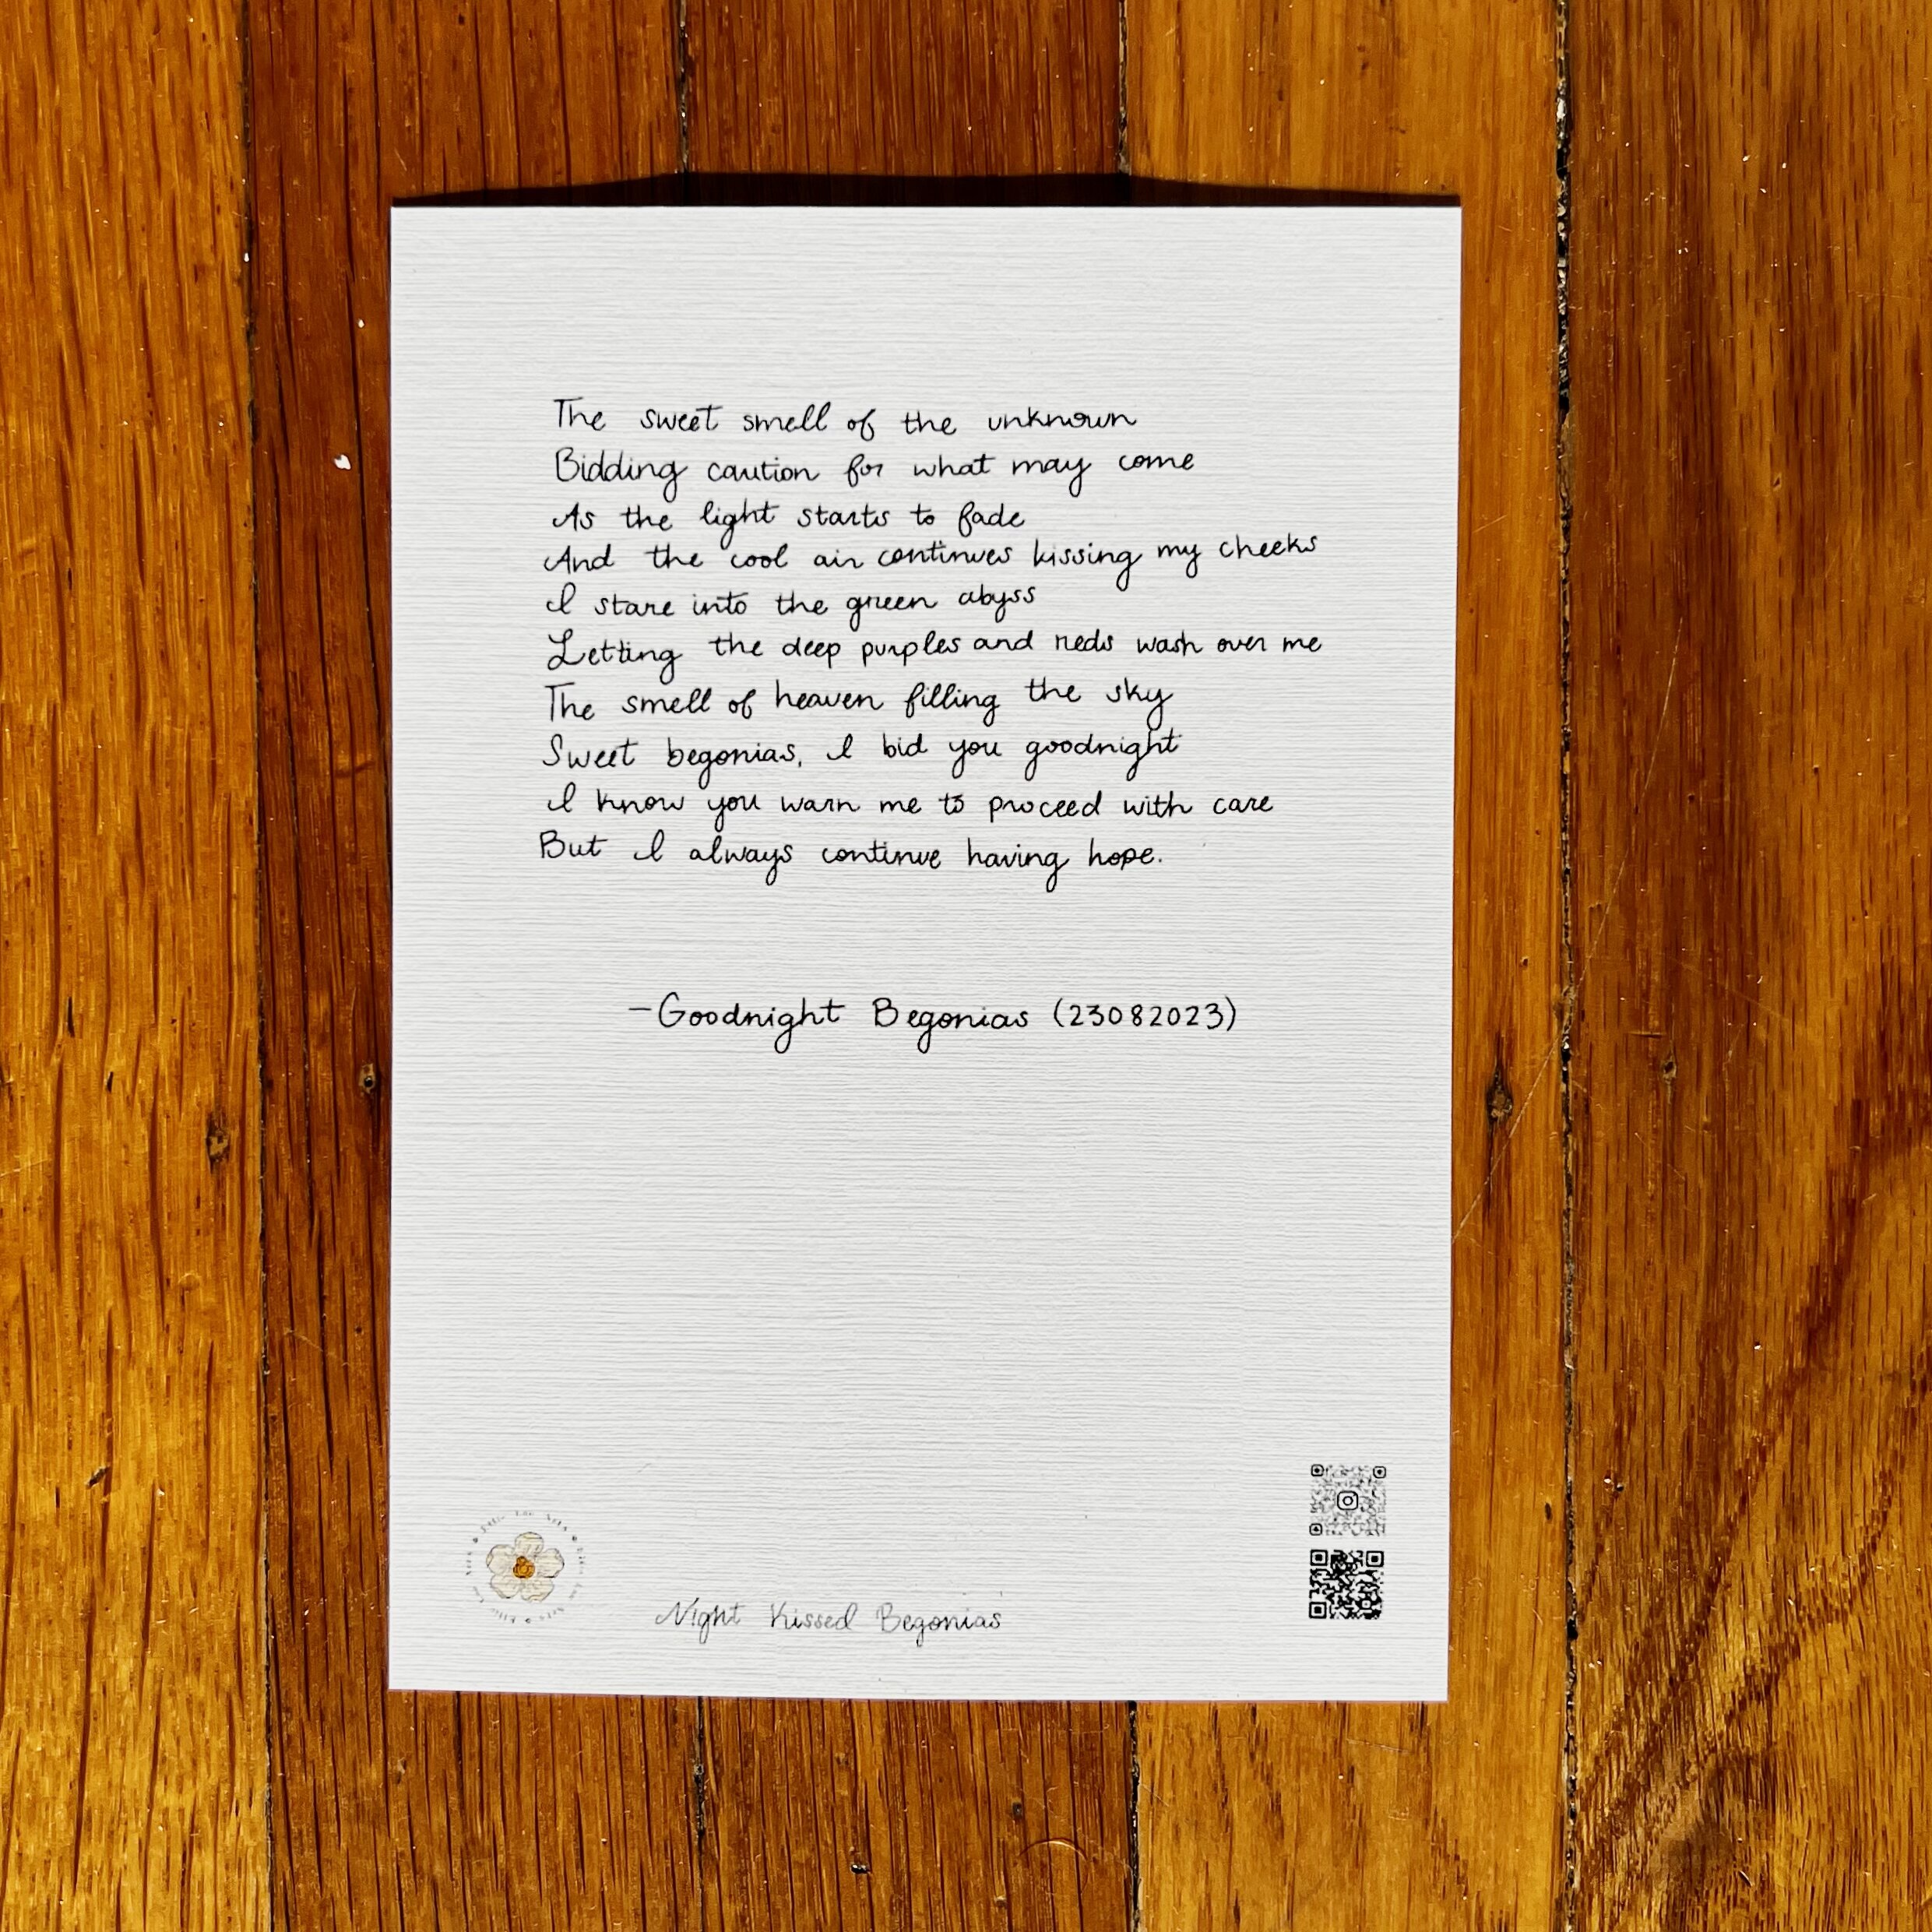 The sweet smell of the unknown
Bidding caution for what may come
As the light starts to fade
And the cool air continues kissing my cheeks
I stare into the green abyss
Letting the deep purples and reds wash over me
The smell of heaven filling the sky
Sweet begonias, I bid you goodnight
I know you warn me to proceed with care
But I always continue having hope.
-Goodnight Begonias (23082023)
Night Kissed Begonias